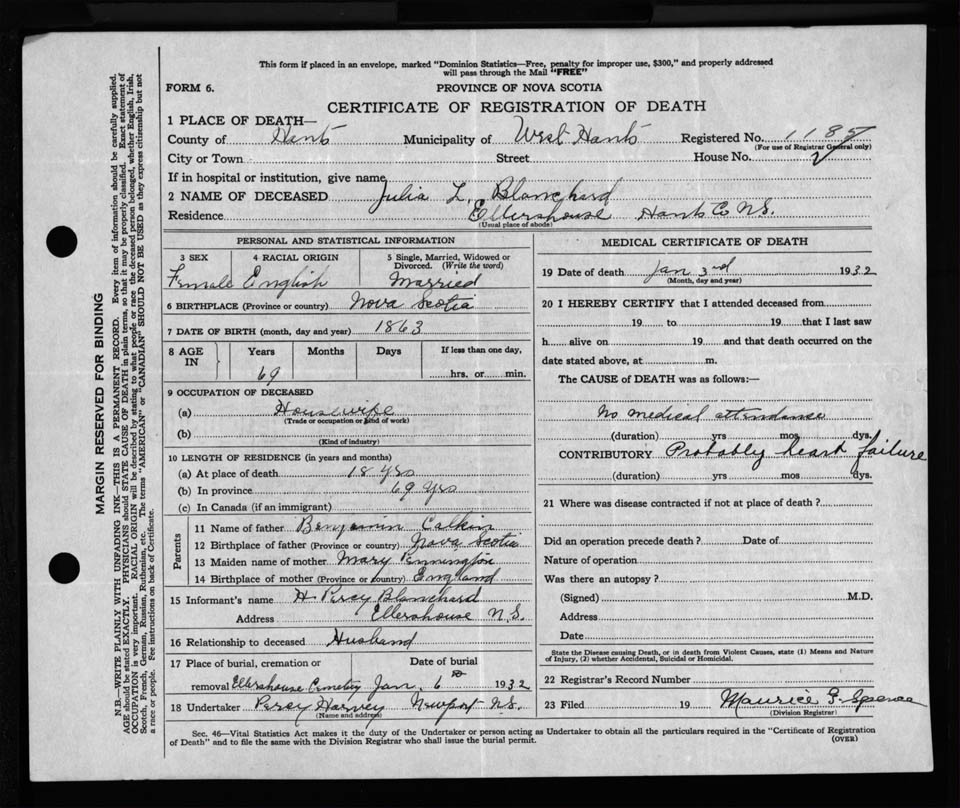 This form if placed in an envelope, marked "Dominion Statistics—Free, penalty for improper use, $300," and properly addressed
will pass through the Mail "FREE"
FORM 6.
PROVINCE OF NOVA SCOTIA
CERTIFICATE OF REGISTRATION OF DEATH
1 PLACE OF DEATH—
County of Hants Municipality of West Hants Registered No. 1185
(For use of Registrar General only)
City or Town Street House No.
If in hospital or institution, give name
2 NAME OF DECEASED Julia L. Blanchard
Residence Ellershouse Hants Co N.S.
(Usual place of abode)
PERSONAL AND STATISTICAL INFORMATION
3 SEX 4 RACIAL ORIGIN 5 Single, Married, Widowed or
Divorced. (Write the word)
Female English Married
6 BIRTHPLACE (Province or country) Nova Scotia
7 DATE OF BIRTH (month, day and year) 1863
8 AGE IN Years Months Days If less than one day,
69 hrs. or min.
9 OCCUPATION OF DECEASED
(a) Housewife
(Trade or occupation or kind of work)
(b)
(Kind of industry)
10 LENGTH OF RESIDENCE (in years and months)
(a) At place of death 18 yrs
(b) In province 69 yrs
(c) In Canada (if an immigrant)
Parents
11 Name of father Benjamin Calkin
12 Birthplace of father (Province or country) Nova Scotia
13 Maiden name of mother Mary Pennington
14 Birthplace of mother (Province or country) England
15 Informant's name H Percy Blanchard
Address Ellershouse N.S.
16 Relationship to deceased Husband
17 Place of burial, cremation or Date of burial
removal Ellershouse Cemetery Jan. 6 1932
18 Undertaker Percy Harvey Newport N.S.
(Name and address)
MEDICAL CERTIFICATE OF DEATH
19 Date of death Jan 3rd 1932
(Month, day and year)
20 I HEREBY CERTIFY that I attended deceased from
19 to 19 that I last saw
h alive on 19 and that death occurred on the
date stated above, at m.
The CAUSE of DEATH was as follows:—
No medical attendance
(duration) yrs mos dys.
CONTRIBUTORY Probably heart failure
(duration) yrs mos dys.
21 Where was disease contracted if not at place of death?
Did an operation precede death? Date of
Nature of operation
Was there an autopsy?
(Signed) M.D.
Address
Date
State the Disease causing Death, or in death from Violent Causes, state (1) Means and Nature
of Injury, (2) whether Accidental, Suicidal or Homicidal.
22 Registrar's Record Number
23 Filed 19 Maurice G. Spence
(Division Registrar)
Sec. 46—Vital Statistics Act makes it the duty of the Undertaker or person acting as Undertaker to obtain all the particulars required in the "Certificate of Registration
of Death" and to file the same with the Division Registrar who shall issue the burial permit. (OVER)
MARGIN RESERVED FOR BINDING
N.B.—WRITE PLAINLY WITH UNFADING INK—THIS IS A PERMANENT RECORD. Every item of information should be carefully supplied.
AGE should be stated EXACTLY. PHYSICIANS should STATE CAUSE OF DEATH in plain terms, so that it may be properly classified. Exact statement of
OCCUPATION is very important. RACIAL ORIGIN will be described by stating to what people or race the deceased person belonged, whether English, Irish,
Scotch, French, German, Russian, Ruthenian, etc. The terms "AMERICAN" or "CANADIAN" SHOULD NOT BE USED as they express citizenship but not
a race or people. See instructions on back of Certificate.